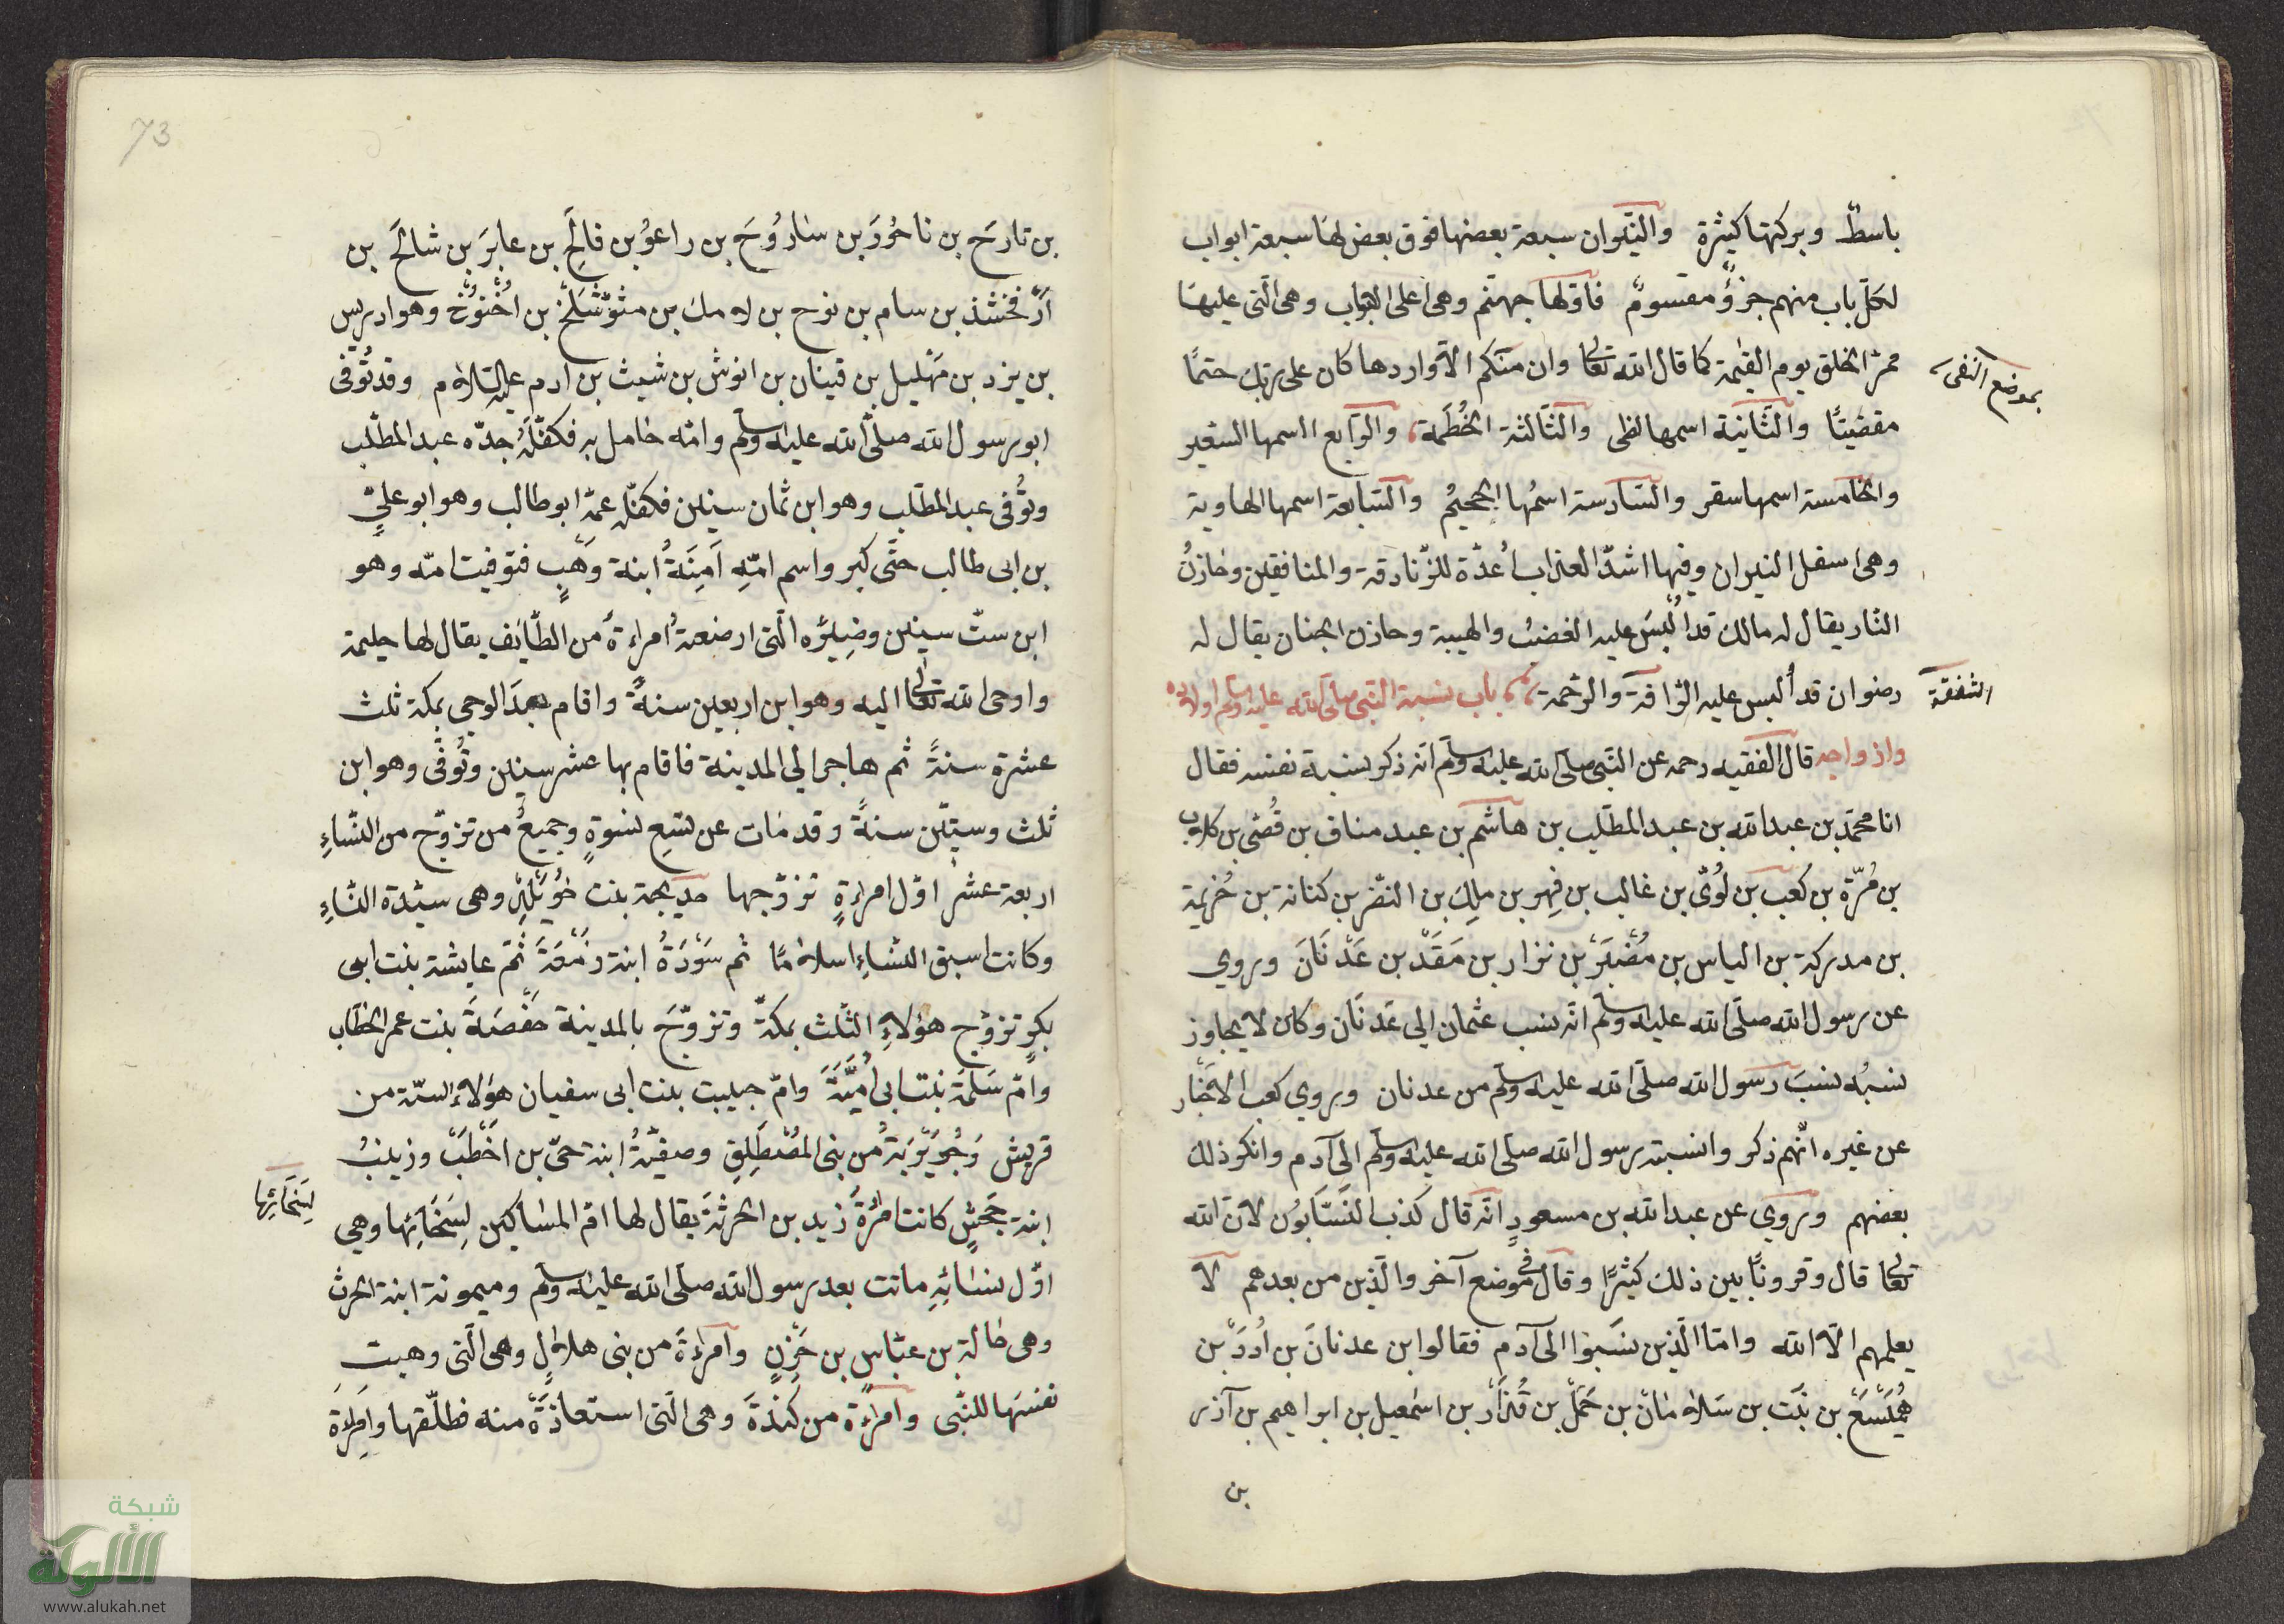 باسط وبركتها كثيرة والنيران سبعة بعضها فوق بعض لها سبعة ابواب
لكل باب منهم جزؤ مقسوم فاولها جهنم وهى اعلى الابواب وهى التى عليها
ممر الخلق يوم القيمة كما قال الله تعالى وان منكم الا واردها كان على ربك حتمًا
بموضع النفى
مقضيًا والثانية اسمها لظى والثالثة الحُطَمة والرابع اسمها السعير
والخامسة اسمها سقر والسادسة اسمُها الجحيمُ والسابعة اسمها الهاوية
وهى اسفل النيران وفيها اشدّ العذاب اُعدّة للزّنادقة والمنافقين وخازنُ
النار يقال له مالك قد اُلْبِسَ عليه الغضبُ والهيبة وخازن الجنان يقال له
رضوان قد أُلبس عليه الرّافة والرّحمة باب نسبة النبى صلى الله عليه وسلم واولاده
الشفقة
وازواجه قال الفقيه رحمه عن النبى صلى الله عليه وسلم انه ذكر نسبة نفسه فقال
انا محمّد بن عبد الله بن عبد المطّلب بن هاشم بن عبد مناف بن قُصّى بن كلاب
بن مُرّة بن كُعب بن لُوىّ بن غالب بن فِهر بن ملِك بن النضر بن كنانة بن خُزيمة
بن مدركة بن الياس بن مُضَر بن نزار بن مَعَدْ بن عَدْنَانَ وروي
عن رسول الله صلى الله عليه وسلم انّه نسب عثمان الى عَدنَان وكان لا يجاوز
نسبُه نسبَ رسول الله صلى الله عليه وسلم من عدنان وروي كعب الاحبار
عن غيره انّهم ذكروا نسبة رسول الله صلى الله عليه وسلم الى آدم وانكر ذلك
بعضهم وروي عن عبد الله بن مسعودٍ انّه قال كذب النَسّابُون لانّ الله
تعالى قال وقرونًا بين ذلك كثيرًا وقال فى موضع آخر والّذين من بعدهم لا
يعلمهم الّا الله وامّا الّذين نسَبوا الى آدم فقالوا بن عدنانَ بن اُدَدَ بن
هُمَيْسَعْ بن نَبَت بن سَلامَان بن حَمَلْ بن قُيذار بن اسمٰعيل بن ابراهيم بن آذر
بن
73
بن تارخ بن ناحُورَ بن سارُوخ بن راعوُ بن فالخ بن عابرَ بن شالخ بن
ارفخشذ بن سام بن نوح بن لامك بن متوشلخ بن اُخنوُخ وهو ادريس
بن يزد بن مَهْليل بن قينان بن انوش بن شيث بن ادم عليه السلام وقد تُوفّى
ابو رسول الله صلّى الله عليه وسلم وامّه حامل به فكفّلَهُ جدّه عبد المطّلب
وتُوفّى عبد المطّلب وهو ابن ثمان سينين فكفّله عمّه ابو طالب وهو ابو علىٍّ
بن ابى طالب حتّى كبر واسم امّهِ آمِنَةُ ابنة وَهَبٍ فتوفيت امّه وهو
ابن ستّ سينين وضيره الّتى ارضعة امراءةٌ من الطّايف يقال لها حليمة
واوحى الله تعالى اليه وهو ابن اربعين سنةً واقام بعدَ الوحي بمكة ثلث
عشرة سنةً ثم هاجر الى المدينة فاقام بها عشر سينين وتُوفّى وهو ابن
ثلث وستّين سنةً وقد مات عن تسع نسوةٍ وجميعُ من تزوّج من النّساءِ
اربعة عشر اوّل امراءةٍ تزوّجها خديجة بنت خُوَيْلِدٍ وهى سيّدة النساءِ
وكانت اسبق النّساءِ اسلامًا ثم سَوْدَةُ ابنة زمْعَةَ ثمّ عايشة بنت ابى
بكرٍ تزوّج هؤلاءِ الثلث بمكّة وتزوّجَ بالمدينة حَفْصَةَ بنت عمر الخطّاب
وامّ سَلمَة بنت ابى اُمَيّةَ وامّ حبيبت بنت ابى سفيان هؤلاء الستّة من
قريش وَجُوَيْرِيَةُ من بنى المُصْطَلِقِ وصفيّةُ ابنة حىّ بن اخْطَبْ وزينبُ
ابنة جَحْشٍ كانت امرءةَ زيد بن الحرثة يقال لها امّ المساكين لِسَخَائِها وهي
لِسَخَائِها
اوّل نسائِه ماتت بعد رسول الله صلى الله عليه وسلم وميمونة ابنة الحرث
وهى خالة بن عبّاسٍ بن حَزْنٍ وامراءةَ من بنى هلالٍ وهى الّتى وهبت
نفسَها للنّبى وامراءة من كِنْدَةَ وهى الّتى استعاذَةْ منه فطلّقها وامراة
شبكة
الألوكة
www.alukah.net